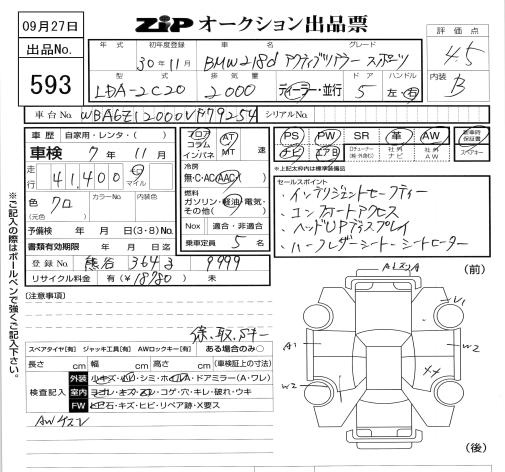 09月27日
出品No.
593
ZIP オークション出品票
評価点
4.5
内装
B
年式 初年度登録 車名 グレード
30年11月 BMW218d アクティブツアラー スポーツ
型式 排気量 ドア ハンドル
LDA-2C20 2000 ディーラー・並行 5 左・右
車台No. WBA6Z12000VF79254 シリアルNo.
車歴 自家用・レンタ・( )
車検 7年 11月
走行 41,400 キロ マイル
色 クロ (元色) カラーNo. 内装色
予備検 年 月 日(3・8)No.
書類有効期限 年 月 日迄
登録No. 熊谷 364 る 9999
リサイクル料金 有(¥18780) 未
フロア コラム インパネ
AT MT 速
冷房
無・C・AC(AAC)
燃料
ガソリン・軽油・電気・その他( )
Nox 適合・非適合
乗車定員 5 名
PS PW SR 革 AW 新車時保証書
ナビ エアB 社外ナビ 社外AW スペアキー
*上記太枠内は標準装備品
セールスポイント
・インテリジェントセーフティー
・コンフォートアクセス
・ヘッドUPディスプレイ
・ハーフレザーシート シートヒーター
※ご記入の際はボールペンで強くご記入下さい。
[注意事項]
保、取、Sキー
スペアタイヤ[有] ジャッキ工具[有] AWロックキー[有] ある場合のみ○
長さ cm 幅 cm 高さ cm (車検証上の寸法)
検査記入
外装 小キズ・凹・シミ・ホイルA・ドアミラー(A・ワレ)
室内 ヨゴレ・キズ・スレ・コゲ・穴・キレ・破れ・ウキ
FW 飛石・キズ・ヒビ・リペア跡・X要ス
AWキズV
(前)
U1
A1
W2
W2
XX
(後)